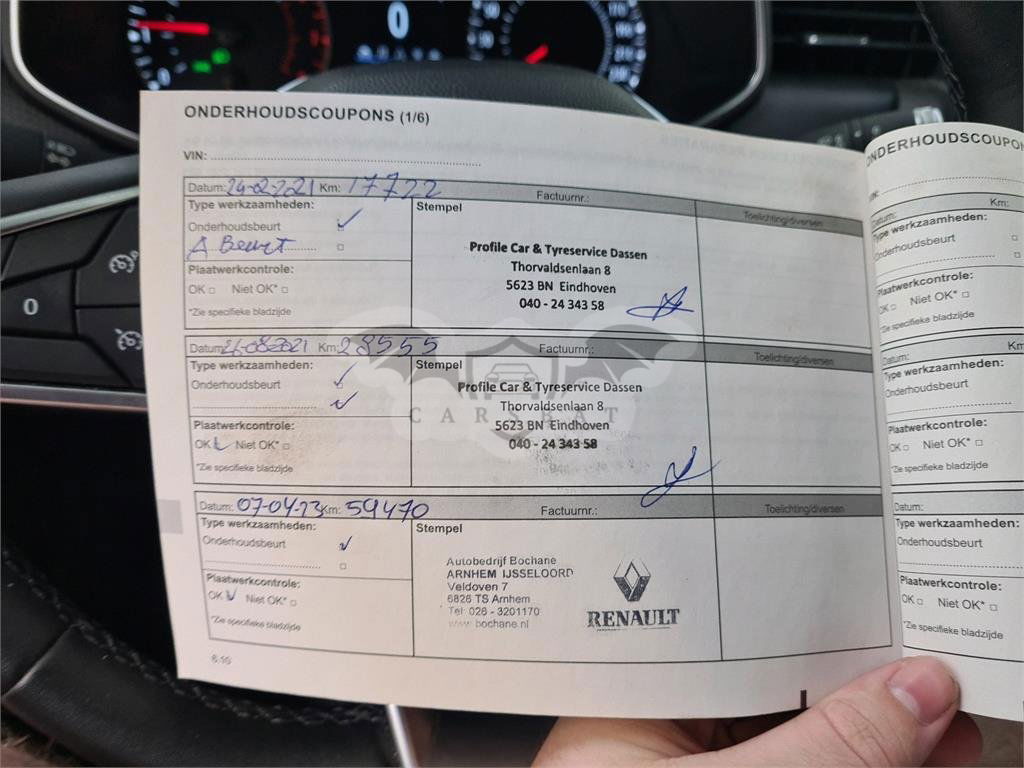 ONDERHOUDSCOUPONS (1/6)
VIN:
Datum: 24-02-2021 Km: 17722 Factuurnr.:
Type werkzaamheden: Stempel Toelichting/diversen
Onderhoudsbeurt
A Beurt
Plaatwerkcontrole:
OK Niet OK*
*Zie specifieke bladzijde
Profile Car & Tyreservice Dassen
Thorvaldsenlaan 8
5623 BN Eindhoven
040 - 24 343 58
Datum: 26-08-2021 Km: 28555 Factuurnr.:
Type werkzaamheden: Stempel Toelichting/diversen
Onderhoudsbeurt
Plaatwerkcontrole:
OK Niet OK*
*Zie specifieke bladzijde
Profile Car & Tyreservice Dassen
Thorvaldsenlaan 8
5623 BN Eindhoven
040 - 24 343 58
CARSBAT
Datum: 07-04-23 Km: 59470 Factuurnr.:
Type werkzaamheden: Stempel Toelichting/diversen
Onderhoudsbeurt
Plaatwerkcontrole:
OK Niet OK*
*Zie specifieke bladzijde
Autobedrijf Bochane
ARNHEM IJSSELOORD
Veldoven 7
6826 TS Arnhem
Tel: 026 - 3201170
www.bochane.nl
RENAULT
6.10
ONDERHOUDSCOUPON
Datum: Km:
Type werkzaamheden:
Onderhoudsbeurt
Plaatwerkcontrole:
OK Niet OK*
*Zie specifieke bladzijde
Datum: Km
Type werkzaamheden:
Onderhoudsbeurt
Plaatwerkcontrole:
OK Niet OK*
*Zie specifieke bladzijde
Datum:
Type werkzaamheden:
Onderhoudsbeurt
Plaatwerkcontrole:
OK Niet OK*
*Zie specifieke bladzijde
0
0